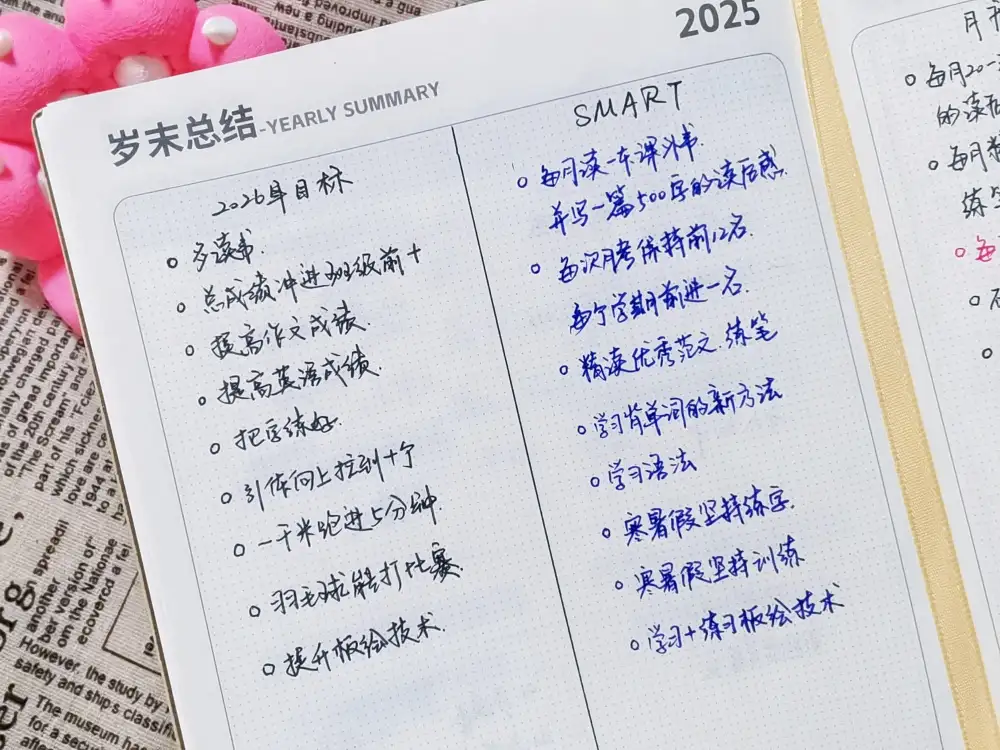 2025
岁末总结-YEARLY SUMMARY
2026年目标
多读书.
总成绩冲进班级前十
提高作文成绩.
提高英语成绩.
把字练好.
引体向上拉到十个
一千米跑进5分钟.
羽毛球能打比赛.
提升板绘技术.
SMART
每月读一本课外书.
并写一篇500字的读后感.
每次月考保持前12名.
每个学期前进一名.
精读优秀范文.练笔
学习背单词的新方法
学习语法
寒暑假坚持练字.
寒暑假坚持训练
学习+练习板绘技术
每月20
的读后
每月
练
每
of the 20th century
part of his
"The Scream"
which
love are
1944
another
ber version of
om the Nationa
ecovered a
However, the study by
safety and ship's classifi
The museum
for a secu